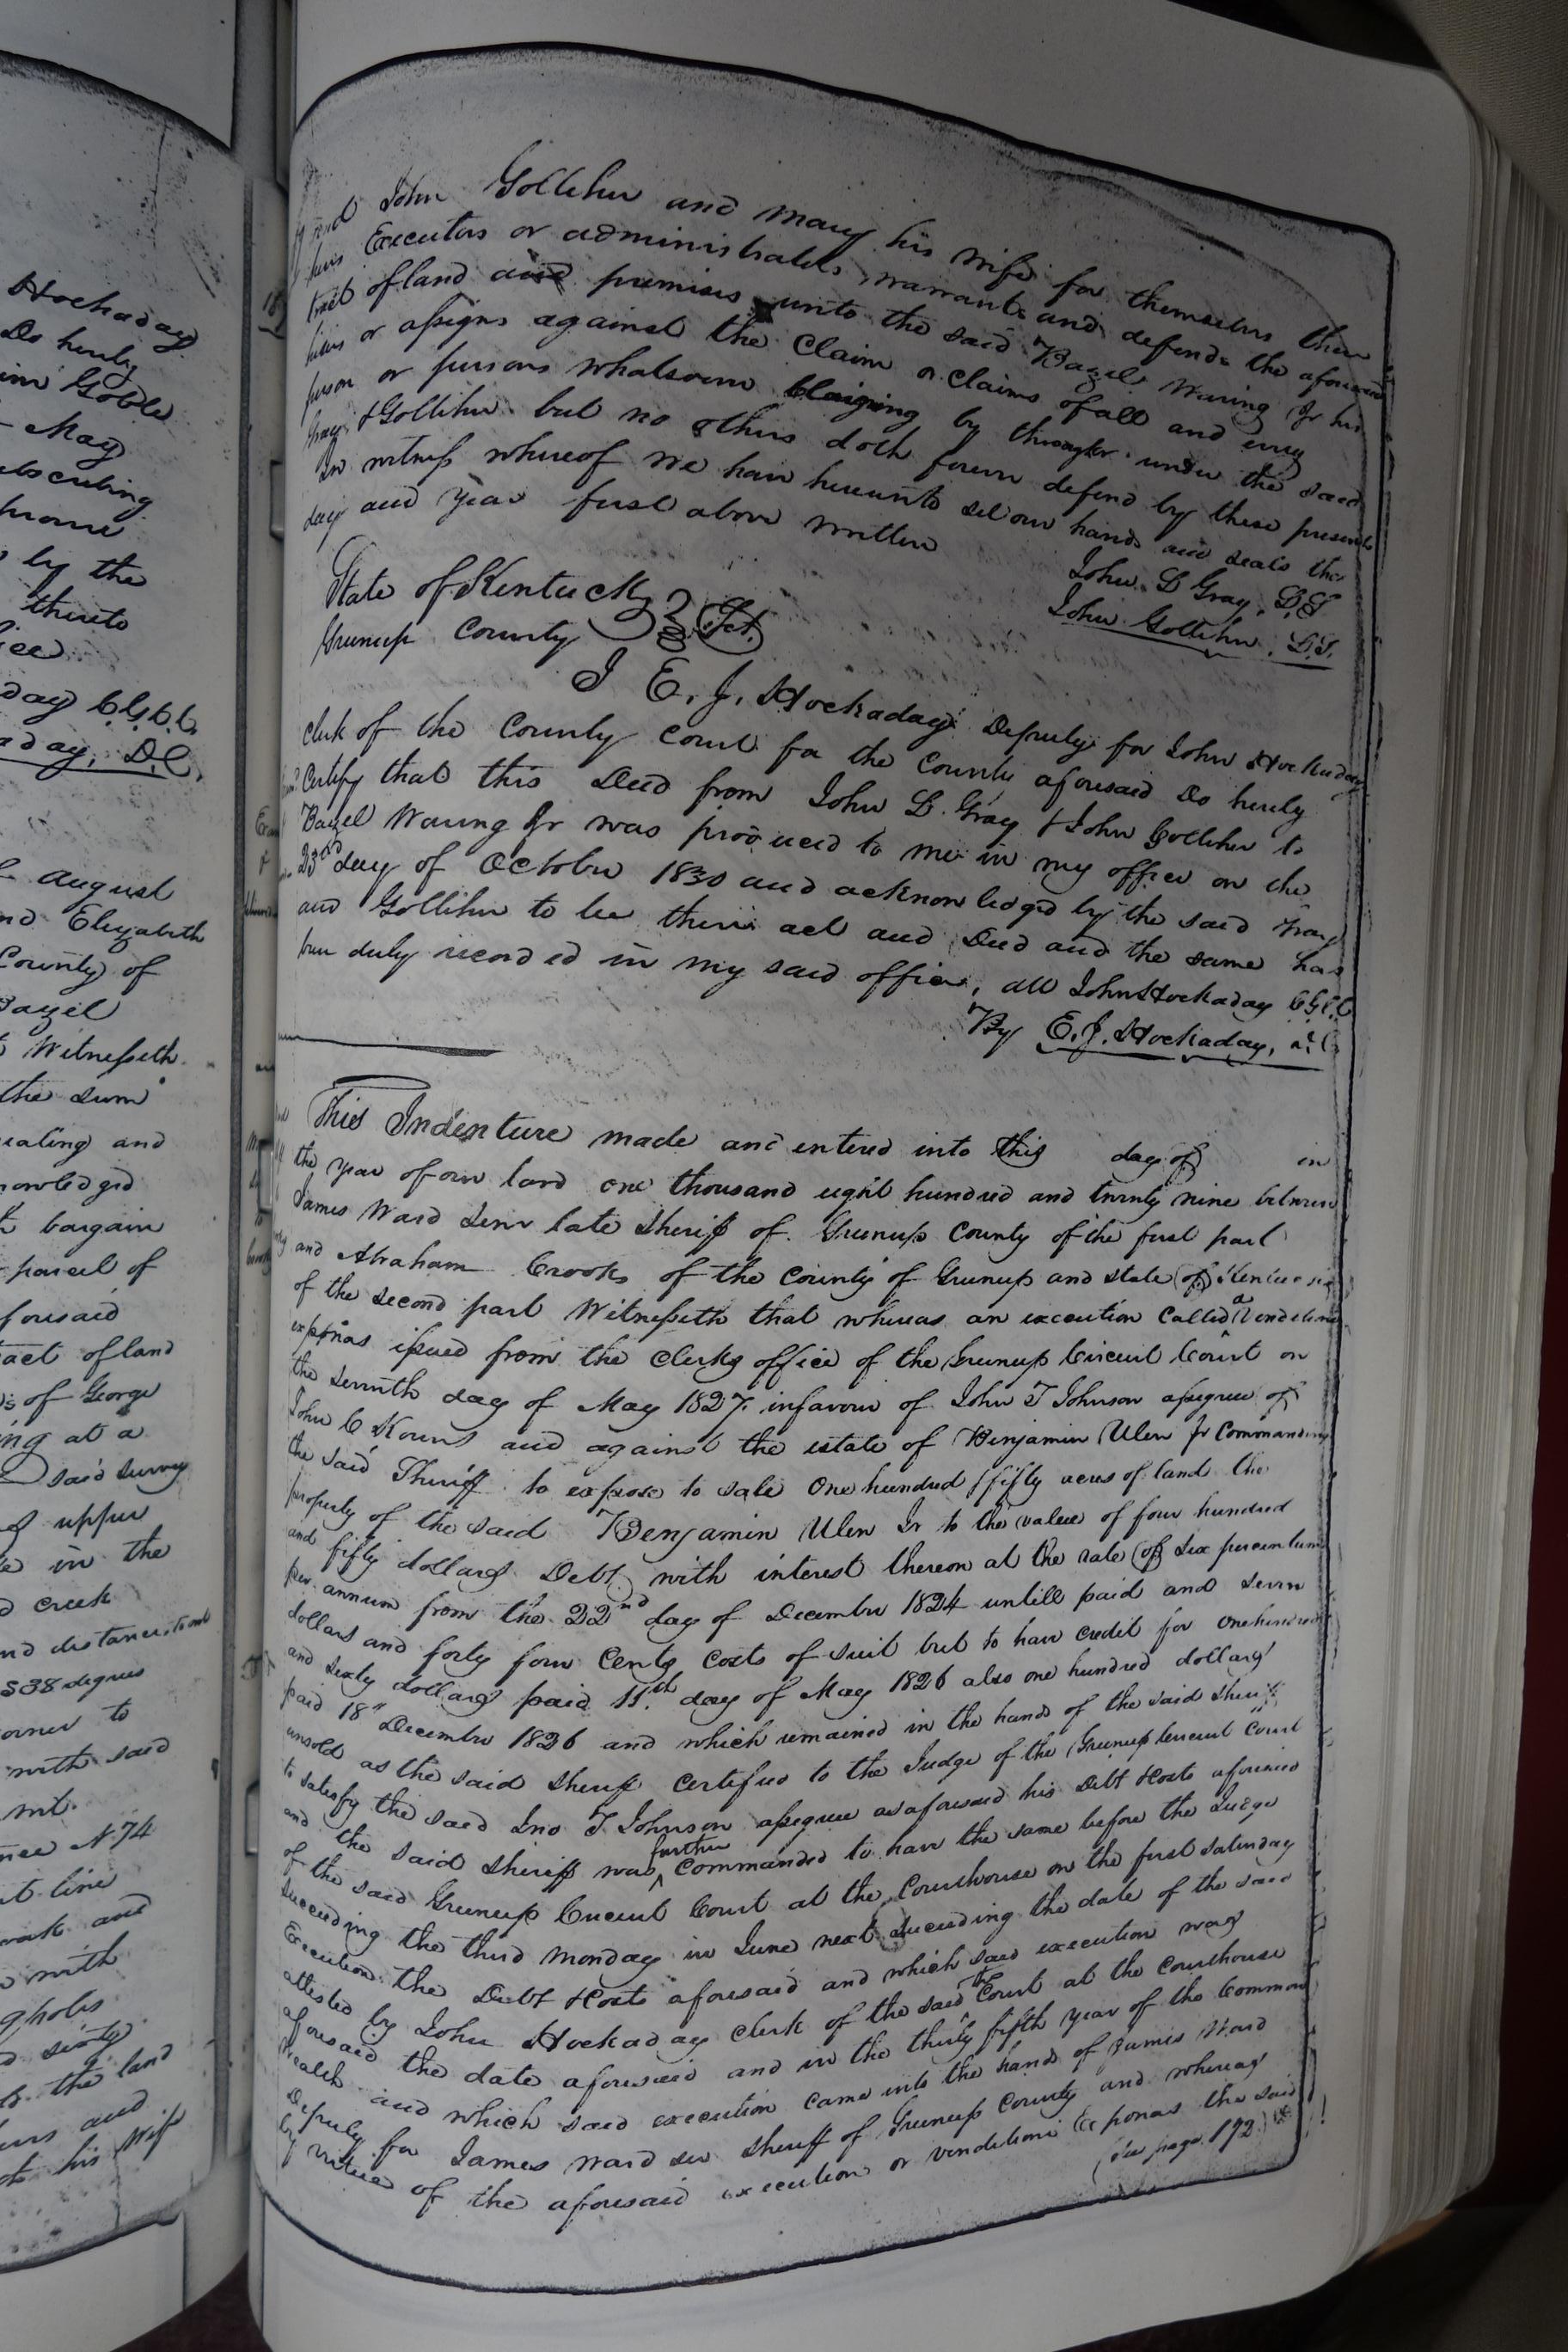 Hockaday
Do hereby
Goble
May
subscribing
by the
thereto
day C.G.C.C.
aday, D.C.
August
and Elizabeth
County of
Bazel
Witnesseth
the sum
and
knowledged
bargain
parcel of
foresaid
tract of land
of George
ing at a
said survey
upper
in the
creek
and distances, to wit
S 38 degrees
corner to
with said
N 74
line
oak and
with
sixty
the land
and
his Wife
John Gollihu and Mary his wife for themselves their
heirs Executors or administrators, warrant and defend the aforesaid
tract of land and premises unto the said Bazel Waring Jr his
heirs or assigns against the claim or claims of all and every
person or persons whatsoever claiming by through or under the said
Gray & Gollihu but no others doth forever defend by these presents
In witness whereof we have hereunto set our hands and seals the
day and year first above written
John L Gray, L,S
John Gollihu, L.S.
State of Kentucky
Greenup County Sct.
I E. J. Hockaday Deputy for John Hockaday
Clerk of the County Court for the County aforesaid Do hereby
Certify that this Deed from John L. Gray & John Gollihu to
Bazel Waring Jr was produced to me in my office on the
23rd day of October 1830 and acknowledged by the said Gray
and Gollihu to be their act and Deed and the same has
been duly recorded in my said office, att John Hockaday C.G.C.C
By E. J. Hockaday, d.C
This Indenture made and entered into this day of in
the year of our lord one thousand eight hundred and twenty nine between
James Ward Senr late Sheriff of Greenup County of the first part
and Abraham Crooks of the County of Greenup and state of Kentucky
of the second part Witnesseth that whereas an execution Called a Venditioni
exponas issued from the Clerks office of the Greenup Circuit Court on
the seventh day of May 1827. in favour of John T Johnson assignee of
John C Kouns and against the estate of Benjamin Ulen Jr Commanding
the said Sheriff to expose to sale One hundred & fifty acres of land the
property of the said Benjamin Ulen Jr to the value of four hundred
and fifty dollars Debt, with interest thereon at the rate of six per centum
per annum from the 22nd day of December 1824 untill paid and seven
dollars and forty four Cents Costs of suit but to have credit for one hundred
and sixty dollars paid 11th day of May 1826 also one hundred dollars
paid 18" December 1826 and which remained in the hands of the said Sheriff
unsold as the said Sheriff certified to the Judge of the Greenup Circuit Court
to satisfy the said Jno T Johnson assignee as aforesaid his Debt & Costs aforesaid
and the said Sheriff was further Commanded to have the same before the Judge
of the said Greenup Circuit Court at the Courthouse on the first saturday
succeeding the third Monday in June next succeeding the date of the said
Execution the Debt & Costs aforesaid and which said execution was
attested by John Hockaday Clerk of the said the Court at the Courthouse
aforesaid the date aforesaid and in the thirty fifth year of the Common
wealth and which said execution came into the hands of James Ward
Deputy for James Ward sen Sheriff of Greenup County and whereas
by virtue of the aforesaid execution or venditioni Exponas the said
(See page 192)